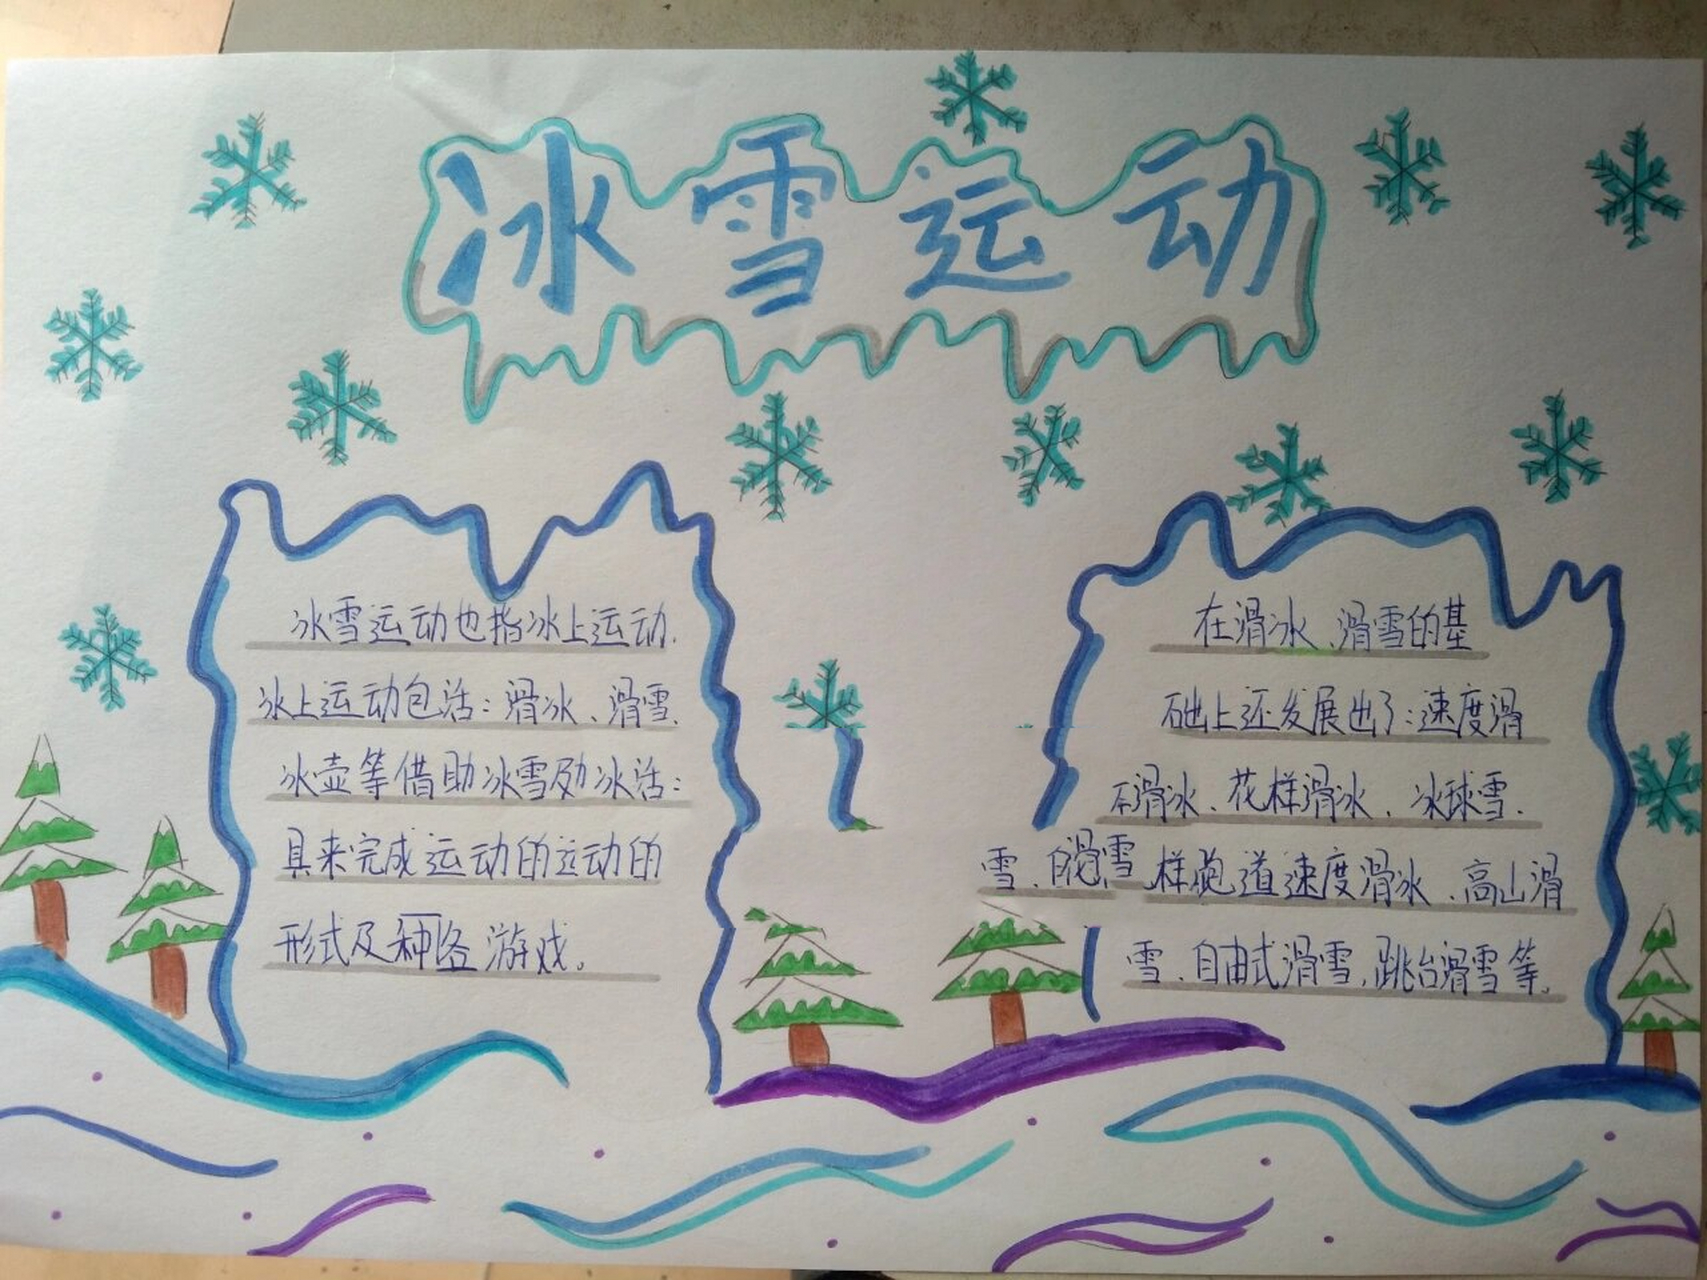 冰雪运动
冰雪运动也指冰上运动.
冰上运动包活：滑冰、滑雪、
冰壶等借助冰雪及冰活：
具来完成运动的运动的
形式及种各游戏。
在滑冰、滑雪的基
础上还发展出了：速度滑
滑冰、花样滑冰、冰球雪.
雪、自滑雪样跑道速度滑冰、高山滑
雪、自由式滑雪,跳台滑雪等。